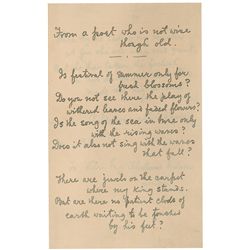 From a poet who is not wise
though old.
Is festival of summer only for
fresh blossoms?
Do you not see there the play of
withered leaves and faded flowers?
Is the song of the sea in tune only
with the rising waves?
Does it also not sing with the waves
that fall?
There are jewels on the carpet
where my King stands.
But are there no patient clods of
earth waiting to be touched
by his feet?